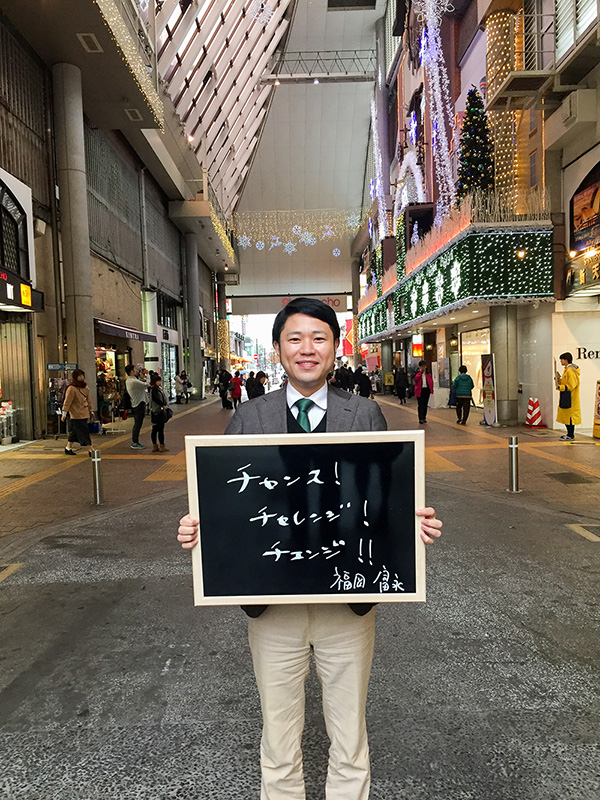 チャンス!
チャレンジ!
チェンジ!!
福岡 富永